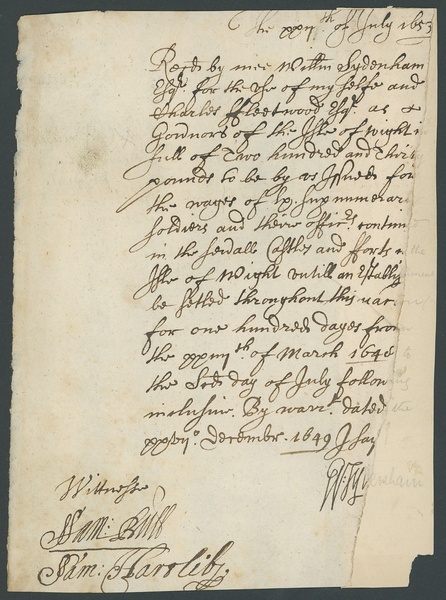 The xxijth of July 1653
Recd by mee Willm Sydenham
Esqr for the Use of my selfe and
Charles Ffleetwood Esqr as
Govnors of the Isle of wight i
full of Two hundred and thir
pounds to be by us Issued for
the wages of lx. supnumerar
soldiers and their officrs contin
in the sevall Castles and fforts
Isle of Wight untill an Establiz
be setled throughout this nac
for one hundred dayes from
the xxiiijth of March 1648
the day of July follow
inclusive. By warrt dated
December. 1649 I say
Wittnesse
Sam: Bull
Sam: Hartlib